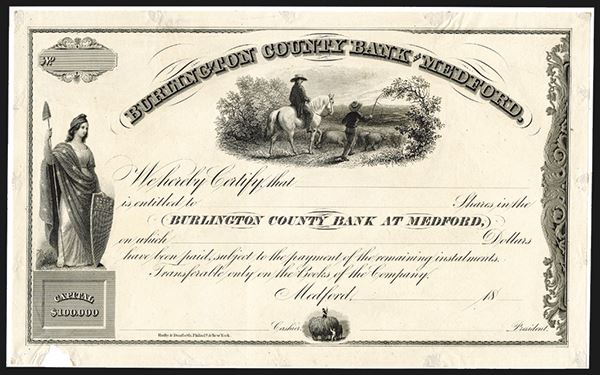 No
BURLINGTON COUNTY BANK AT MEDFORD.
We hereby Certify, that
is entitled to Shares in the
BURLINGTON COUNTY BANK AT MEDFORD,
on which Dollars
have been paid, subject to the payment of the remaining instalments.
Transferable only on the Books of the Company.
Medford, 18
CAPITAL
$100.000
Cashier. President.
Danforth, Philada. & New York.